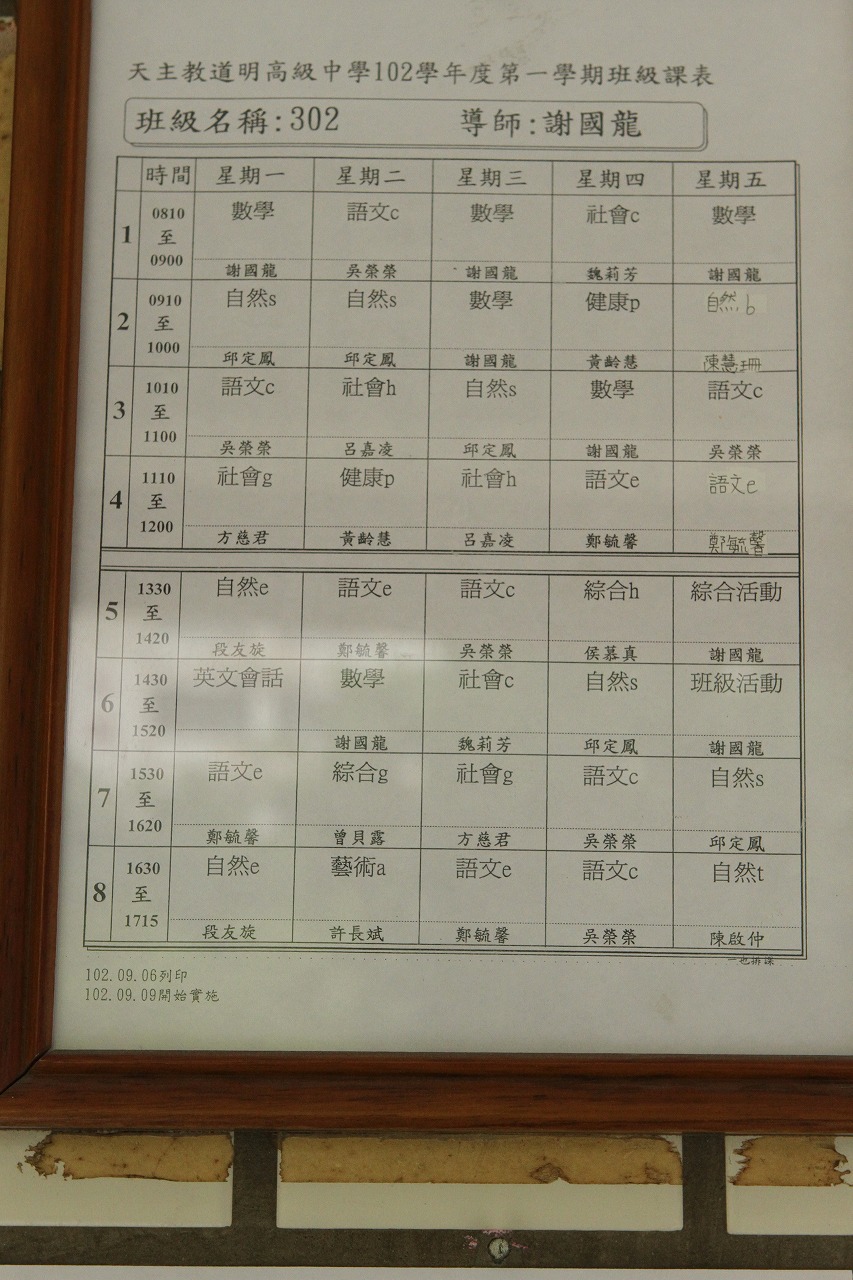 天主教道明高級中學102學年度第一學期班級課表
班級名稱:302 導師:謝國龍
時間 星期一 星期二 星期三 星期四 星期五
1 0810至0900 數學 語文c 數學 社會c 數學
謝國龍 吳榮榮 謝國龍 魏莉芳 謝國龍
2 0910至1000 自然s 自然s 數學 健康p 自然b
邱定鳳 邱定鳳 謝國龍 黃齡慧 陳慧珊
3 1010至1100 語文c 社會h 自然s 數學 語文c
吳榮榮 呂嘉凌 邱定鳳 謝國龍 吳榮榮
4 1110至1200 社會g 健康p 社會h 語文e 語文e
方慈君 黃齡慧 呂嘉凌 鄭毓馨 鄭毓馨
5 1330至1420 自然e 語文e 語文c 綜合h 綜合活動
段友旋 鄭毓馨 吳榮榮 侯慕真 謝國龍
6 1430至1520 英文會話 數學 社會c 自然s 班級活動
謝國龍 魏莉芳 邱定鳳 謝國龍
7 1530至1620 語文e 綜合g 社會g 語文c 自然s
鄭毓馨 曾貝露 方慈君 吳榮榮 邱定鳳
8 1630至1715 自然e 藝術a 語文e 語文c 自然t
段友旋 許長斌 鄭毓馨 吳榮榮 陳啟仲
102.09.06列印
102.09.09開始實施